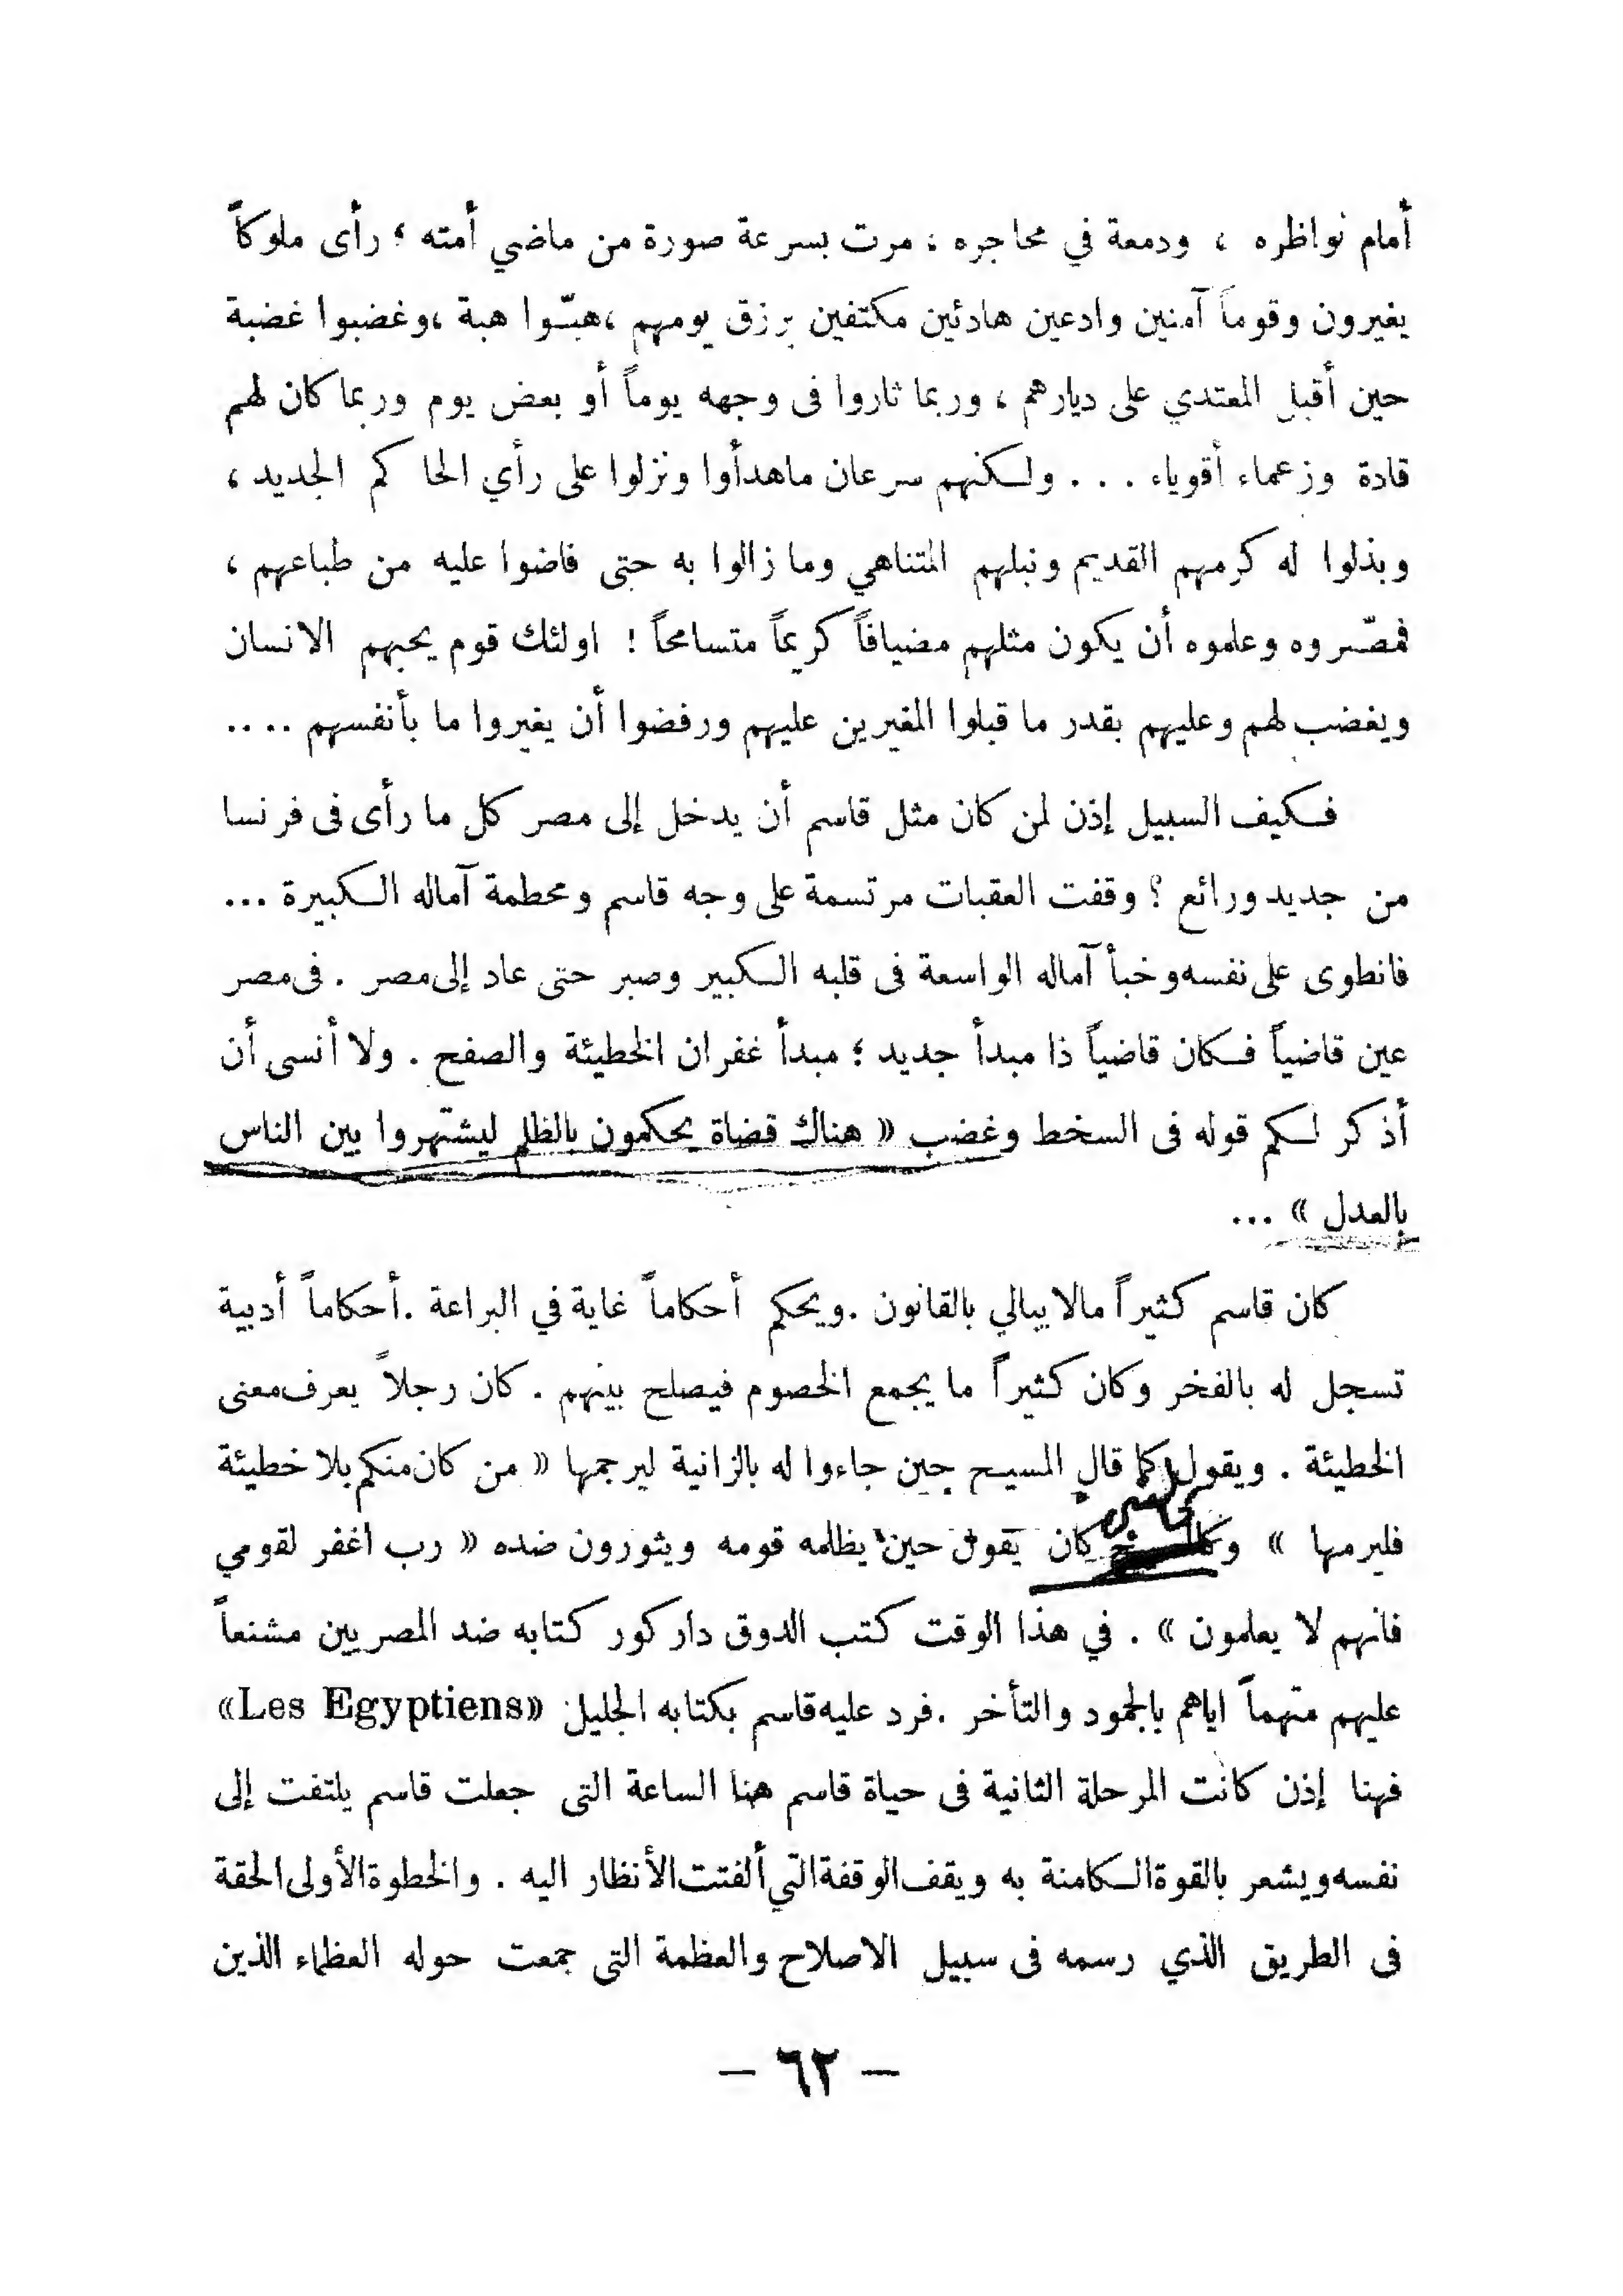 أمام نواظره ، ودمعة في محاجره ؛ مرت بسرعة صورة من ماضي أمته ؛ رأى ملوكاً
يغيرون وقوماً آمنين وادعين هادئين مكتفين برزق يومهم ،هبّوا هبة ،وغضبوا غضبة
حين أقبل المعتدي على ديارهم ، وربما ثاروا فى وجهه يوماً أو بعض يوم وربما كان لهم
قادة وزعماء أقوياء . . . ولكنهم سرعان ماهدأوا ونزلوا على رأي الحا كم الجديد ،
وبذلوا له كرمهم القديم ونبلهم المتناهي وما زالوا به حتى فاضوا عليه من طباعهم ،
فمصّروه وعلموه أن يكون مثلهم مضيافاً كريماً متسامحاً ! اولئك قوم يحبهم الانسان
ويغضب لهم وعليهم بقدر ما قبلوا المغيرين عليهم ورفضوا أن يغيروا ما بأنفسهم ....
فكيف السبيل إذن لمن كان مثل قاسم أن يدخل إلى مصر كل ما رأى فى فرنسا
من جديد ورائع ؟ وقفت العقبات مرتسمة على وجه قاسم ومحطمة آماله الكبيرة ...
فانطوى على نفسه وخبأ آماله الواسعة فى قلبه الكبير وصبر حتى عاد إلى مصر . فى مصر
عين قاضياً فكان قاضياً ذا مبدأ جديد ؛ مبدأ غفران الخطيئة والصفح . ولا أنسى أن
أذكر لكم قوله فى السخط وغضب « هناك قضاة يحكمون بالظلم ليشتهروا بين الناس
بالعدل » ...
كان قاسم كثيراً مالا يبالي بالقانون .ويحكم أحكاماً غاية في البراعة .أحكاماً أدبية
تسجل له بالفخر وكان كثيراً ما يجمع الخصوم فيصلح بينهم . كان رجلاً يعرف معنى
الخطيئة . ويقول كما قال المسيح حين جاءوا له بالزانية ليرجمها « من كان منكم بلا خطيئة
فليرمها » كان يقول حين يظلمه قومه ويثورون ضده « رب اغفر لقومي
فانهم لا يعلمون » . في هذا الوقت كتب الدوق داركور كتابه ضد المصريين مشنعاً
عليهم متهماً اياهم بالجمود والتأخر .فرد عليه قاسم بكتابه الجليل «Les Egyptiens»
فهنا إذن كانت المرحلة الثانية فى حياة قاسم هنا الساعة التى جعلت قاسم يلتفت إلى
نفسه ويشعر بالقوة الكامنة به ويقف الوقفة التي ألفتت الأنظار اليه . والخطوة الأولى الحقة
فى الطريق الذي رسمه فى سبيل الاصلاح والعظمة التى جمعت حوله العظماء الذين
— ٦٢ —